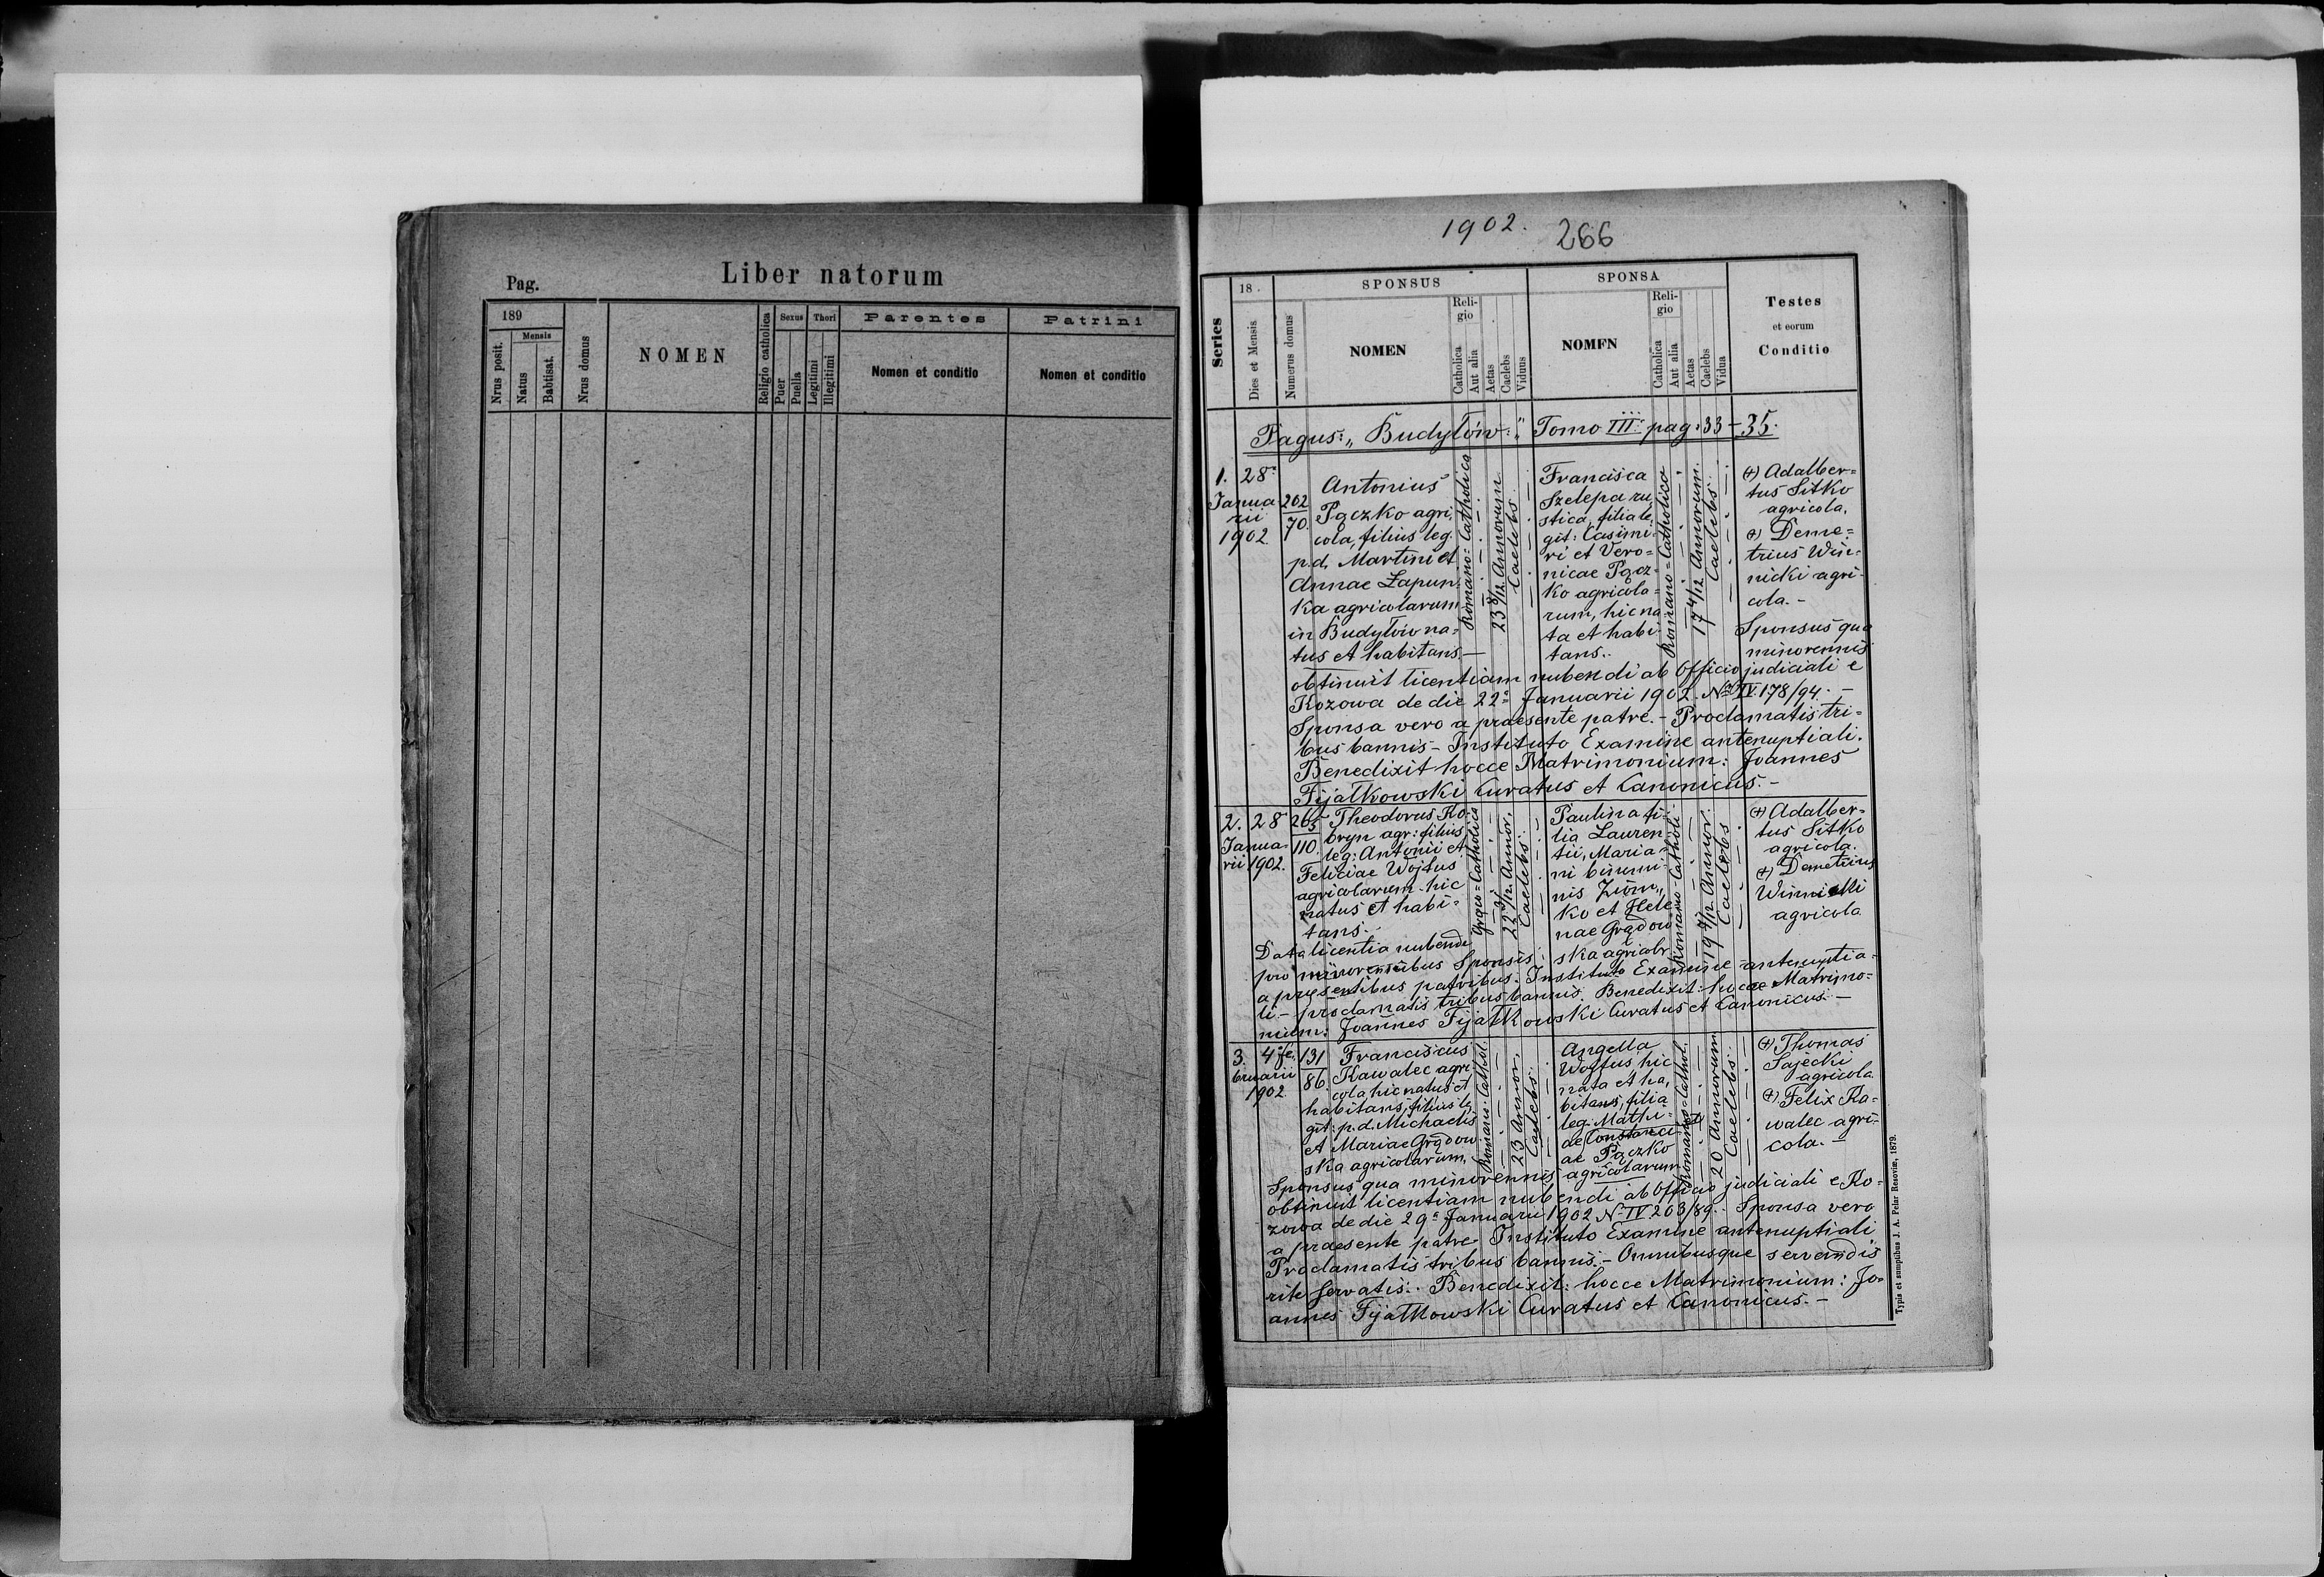 Pag.
Liber natorum
189
Mensis
Nrus posit.
Natus
Babtisat.
Nrus domus
NOMEN
Religio catholica
Sexus
Puer
Puella
Thori
Legitimi
Illegitimi
Parentes
Nomen et conditio
Patrini
Nomen et conditio
1902.
266
Series
18 .
Dies et Mensis
SPONSUS
Numerus domus
NOMEN
Reli-
gio
Catholica
Aut alia
Aetas
Caelebs
Viduus
SPONSA
NOMFN
Reli-
gio
Catholica
Aut alia
Aetas
Caelebs
Vidua
Testes
et eorum
Conditio
Pagus: „Budyłów:" Tomo III: pag: 33-35.
1. 28
Janua-
rii
1902.
202
70.
Antonius
Pączko agri-
cola, filius leg.
p.d. Martini et
Annae Łapun-
ka agricolarum
in Budyłów na-
tus et habitans.-
Romano=Catholica
23 8/12 Annorum
Caelebs.
Francisca
Szelepa ru-
stica, filia le-
git: Casimi-
ri et Vero=
nicae Pącz-
ko agricola-
rum, hic na-
ta et habi-
tans..
Romano=Catholica
17 4/12 Annorum.
Caelebs.
(+) Adalber=
tus Sitko
agricola.
(+) Deme=
trius Win-
nicki agri-
cola.-
Sponsus qua
minorennis
obtinuit licentiam nubendi ab Officio judiciali e
Kozowa de die 22a Januarii 1902. No IV.178/94.-
Sponsa vero a praesente patre.- Proclamatis tri=
bus bannis- Instituto Examine antenuptiali.
Benedixit hocce Matrimonium: Joannes
Fijałkowski Curatus et Canonicus.-
2. 28
Janua-
rii 1902.
265
110.
Theodorus Ko-
bryn agr: filius
leg: Antonii et
Feliciae Wojtus
agricolarum hic
natus et habi=
tans.
Gręco=Catholica
22 3/12 Annor.
Caelebs.
Paulina fi-
lia Lauren-
tii, Maria-
ni binomi-
nis Ziom„
ko et Hele-
nae Grądow
ska agricolr
Romano-Catholi.
19 4/12 Annor.
Caelebs
(+) Adalber=
tus Sitko
agricola.
(+) Demetrius
Winnicki
agricola
Data licentia nubendi
pro minorennibus Sponsis
a pręsentibus patribus. Instituto Examine antenuptia-
li- proclamatis tribus bannis. Benedixit: hocce Matrimo=
nium: Joannes Fijałkowski Curatus et Canonicus.-
3. 4 Fe
bruarii
1902.
131
86.
Franciscus
Kawalec agri-
cola, hic natus et
habitans, filius le
git: p.d. Michaelis
et Mariae Grądow-
ska agricolarum.
Romano: Cathol.
23 Annor.
Caelebs.
Angella
Wojtus hic
nata et ha,
bitans, filia
leg: Mathi-
ae Constanci-
ae Pączko
agricolarum
Romano=Cathol.
20 Annorum
Caelebs.
(+) Thomas
Sajecki
agricola.
(+) Felix Ka=
walec agri-
cola.-
Sponsus qua minorennis
obtinuit licentiam nubendi ab Officio judiciali e Ko-
zowa de die 29a Januarii 1902 N-IV.203/89.- Sponsa vero
a praesente patre- Instituto Examine antenuptiali
Proclamatis tribus bannis.- Omnibusque servandis
rite servatis.. Benedixit: hocce Matrimonium: Jo=
annes Fijałkowski Curatus et Canonicus.-
Typis et sumptibus J. A. Pelar Resoviæ, 1879.